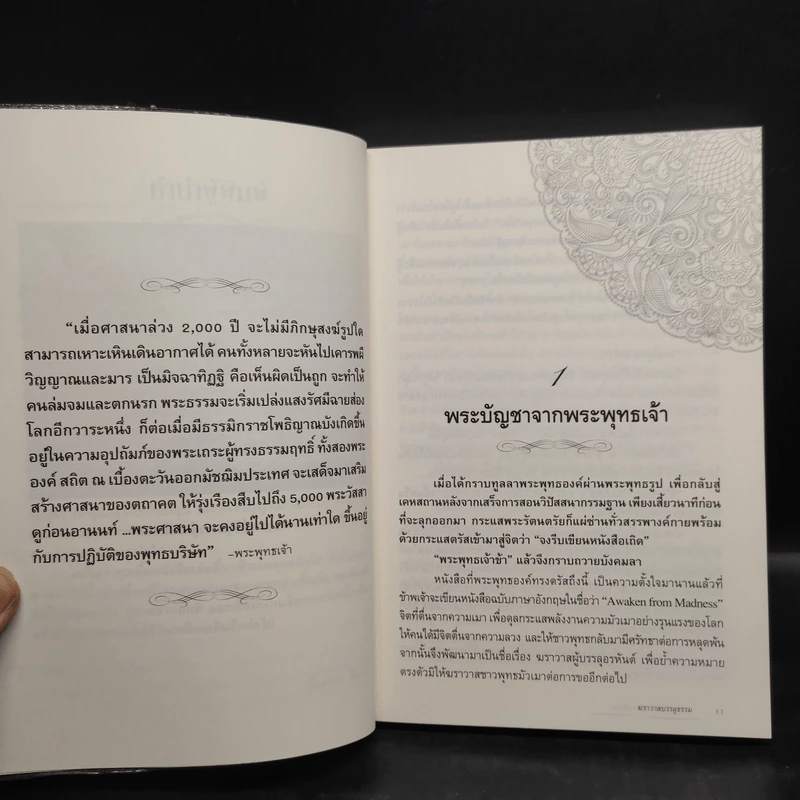 “เมื่อศาสนาล่วง 2,000 ปี จะไม่มีภิกษุสงฆ์รูปใด
สามารถเหาะเหินเดินอากาศได้ คนทั้งหลายจะหันไปเคารพผี
วิญญาณและมาร เป็นมิจฉาทิฏฐิ คือเห็นผิดเป็นถูก จะทำให้
คนล่มจมและตกนรก พระธรรมจะเริ่มเปล่งแสงรัศมีฉายส่อง
โลกอีกวาระหนึ่ง ก็ต่อเมื่อมีธรรมิกราชโพธิญาณบังเกิดขึ้น
อยู่ในความอุปถัมภ์ของพระเถระผู้ทรงธรรมฤทธิ์ ทั้งสองพระ
องค์ สถิต ณ เบื้องตะวันออกมัชฌิมประเทศ จะเสด็จมาเสริม
สร้างศาสนาของตถาคต ให้รุ่งเรืองสืบไปถึง 5,000 พระวัสสา
ดูก่อนอานนท์ ...พระศาสนา จะคงอยู่ไปได้นานเท่าใด ขึ้นอยู่
กับการปฏิบัติของพุทธบริษัท” –พระพุทธเจ้า
1
พระบัญชาจากพระพุทธเจ้า
เมื่อได้กราบทูลลาพระพุทธองค์ผ่านพระพุทธรูป เพื่อกลับสู่
เคหสถานหลังจากเสร็จการสอนวิปัสสนากรรมฐาน เพียงเสี้ยวนาทีก่อน
ที่จะลุกออกมา กระแสพระรัตนตรัยก็แผ่ซ่านทั่วสรรพางค์กายพร้อม
ด้วยกระแสตรัสเข้ามาสู่จิตว่า “จงรีบเขียนหนังสือเถิด”
“พระพุทธเจ้าข้า” แล้วจึงกราบถวายบังคมลา
หนังสือที่พระพุทธองค์ทรงตรัสถึงนี้ เป็นความตั้งใจมานานแล้วที่
ข้าพเจ้าจะเขียนหนังสือฉบับภาษาอังกฤษในชื่อว่า “Awaken from Madness”
จิตที่ตื่นจากความเมา เพื่อดุลกระแสพลังงานความมัวเมาอย่างรุนแรงของโลก
ให้คนได้มีจิตตื่นจากความลวง และให้ชาวพุทธกลับมามีศรัทธาต่อการหลุดพ้น
จากนั้นจึงพัฒนามาเป็นชื่อเรื่อง ฆราวาสผู้บรรลุอรหันต์ เพื่อย้ำความหมาย
ตรงตัวมิให้ฆราวาสชาวพุทธมัวเมาต่อการขออีกต่อไป
ฆราวาสบรรลุธรรม 11